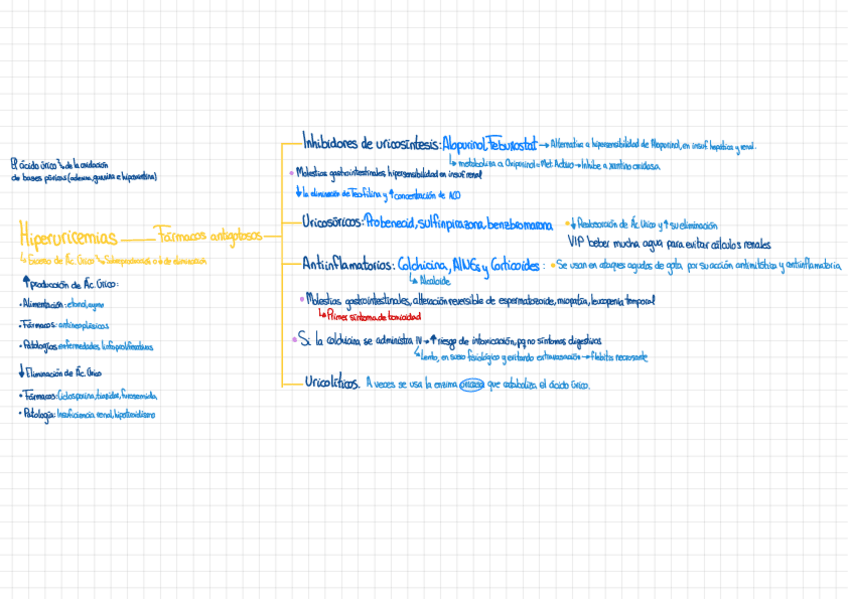 El ácido úrico de la oxidación
de bases púricas (adenina, guanina e hipoxantina)
Hiperuricemias
Fármacos antigotosos
Exceso de Ác. Úrico Sobreproducción o ↓ de eliminación
↑ producción de Ác. Úrico:
• Alimentación: etanol,
• Fármacos: antineoplásicos
• Patologías: enfermedades linfoproliferativas
↓ Eliminación de Ác. Úrico
• Fármacos: Ciclosporina, tiazidas, furosemida
• Patología: Insuficiencia renal, hipotiroidismo
Inhibidores de uricosíntesis: Alopurinol, Febuxostat → Alternativa a hipersensibilidad de Alopurinol, en insuf hepática y renal.
↳ metaboliza a Oxipurinol = Met. Activo → Inhibe a xantina oxidasa.
• Molestias gastrointestinales, hipersensibilidad en insuf renal
↓ la eliminación de Teofilina y ↑ concentración de ACO
Uricosúricos: Probenecid, sulfinpirazona, benzbromarona
• ↓ Reabsorción de Ác. Úrico y ↑ su eliminación
VIP beber mucha agua para evitar cálculos renales
Antiinflamatorios: Colchicina, AINEs y Corticoides:
• Se usan en ataques agudos de gota, por su acción antimitótica y antiinflamatoria.
↳ Alcaloide
• Molestias gastrointestinales, alteración reversible de espermatozoide, miopatía, leucopenia temporal
↳ Primer síntoma de toxicidad
• Si la colchicina se administra IV → ↑ riesgo de intoxicación, pq no síntomas digestivos
↳ Lento, en suero fisiológico y evitando extravasación → flebitis necrosante
Uricolíticos. A veces se usa la enzima uricasa que cataboliza el ácido úrico.